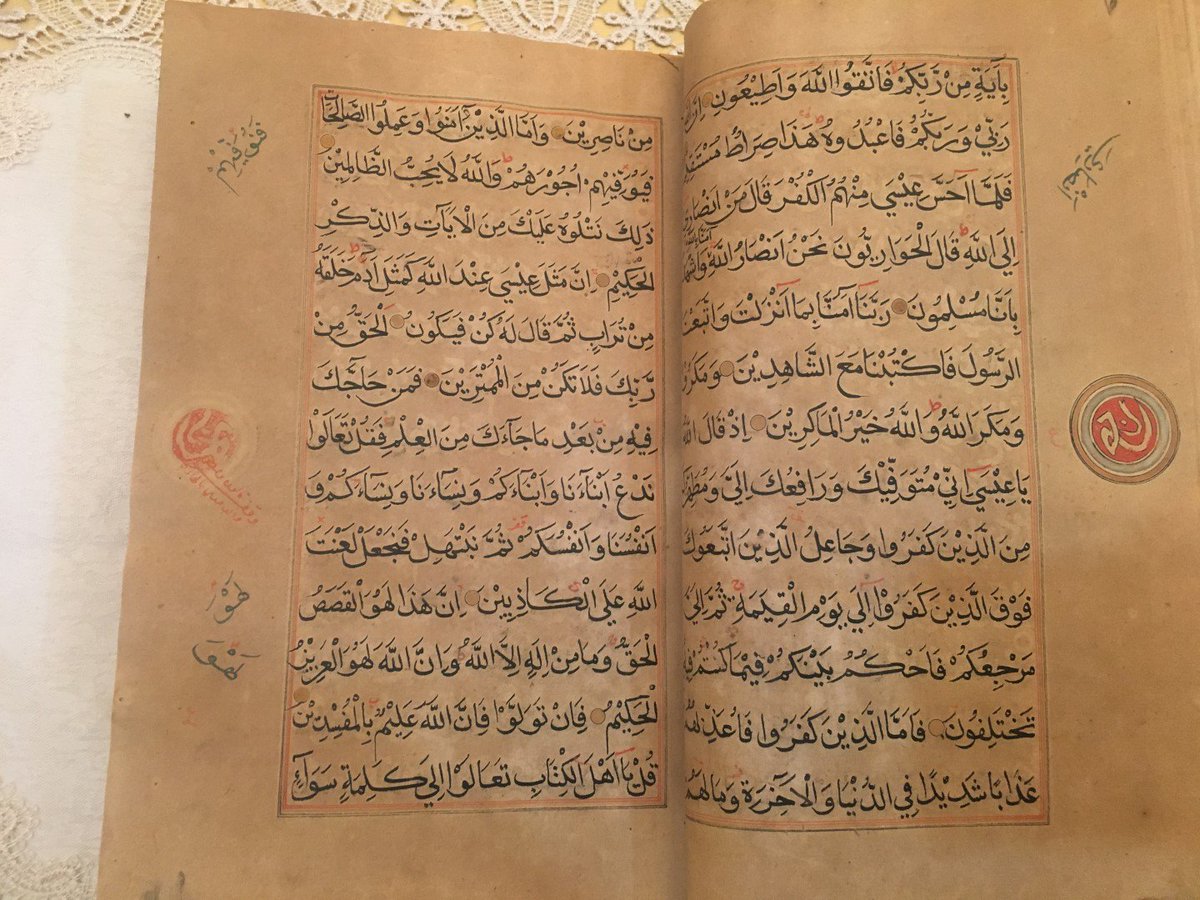 بِآيَةٍ مِنْ رَبِّكُمْ فَاتَّقُوا اللَّهَ وَأَطِيعُونِ اِنَّ اللَّهَ
رَبِّيْ وَرَبُّكُمْ فَاعْبُدُوهُ هَذَا صِرَاطٌ مُسْتَقِيمٌ
فَلَمَّا اَحَسَّ عِيْسَي مِنْهُمُ الْكُفْرَ قَالَ مَنْ اَنْصَارِيْ
اِلَي اللَّهِ قَالَ الْحَوَارِيُّونَ نَحْنُ اَنْصَارُ اللَّهِ آمَنَّا بِاللَّهِ وَاشْهَدْ
بِاَنَّا مُسْلِمُونَ رَبَّنَا آمَنَّا بِمَا اَنْزَلْتَ وَاتَّبَعْنَا
الرَّسُولَ فَاكْتُبْنَا مَعَ الشَّاهِدِيْنَ وَمَكَرُوا
وَمَكَرَ اللَّهُ وَاللَّهُ خَيْرُ الْمَاكِرِيْنَ اِذْ قَالَ اللَّهُ
يَا عِيْسَي اِنِّيْ مُتَوَفِّيْكَ وَرَافِعُكَ اِلَيَّ وَمُطَهِّرُكَ
مِنَ الَّذِيْنَ كَفَرُوا وَجَاعِلُ الَّذِيْنَ اتَّبَعُوكَ
فَوْقَ الَّذِيْنَ كَفَرُوْا اِلَي يَوْمِ الْقِيَمَةِ ثُمَّ اِلَيَّ
مَرْجِعُكُمْ فَاَحْكُمُ بَيْنَكُمْ فِيْمَا كُنْتُمْ فِيْهِ
تَخْتَلِفُونَ فَاَمَّا الَّذِيْنَ كَفَرُوا فَاُعَذِّبُهُمْ
عَذَابًا شَدِيْدًا فِي الدُّنْيَا وَالْاَخِرَةِ وَمَالَهُمْ
مِنْ نَاصِرِيْنَ وَاَمَّا الَّذِيْنَ آمَنُوْا وَعَمِلُوا الصَّالِحَاتِ
فَيُوَفِّيْهِمْ اُجُوْرَهُمْ وَاللَّهُ لَا يُحِبُّ الظَّالِمِيْنَ
ذَلِكَ نَتْلُوْهُ عَلَيْكَ مِنَ الْاَيَاتِ وَالذِّكْرِ
الْحَكِيْمِ اِنَّ مَثَلَ عِيْسَي عِنْدَ اللَّهِ كَمَثَلِ اَدَمَ خَلَقَهُ
مِنْ تُرَابٍ ثُمَّ قَالَ لَهُ كُنْ فَيَكُوْنُ الْحَقُّ مِنْ
رَّبِّكَ فَلَا تَكُنْ مِنَ الْمُمْتَرِيْنَ فَمَنْ حَاجَّكَ
فِيْهِ مِنْ بَعْدِ مَا جَاءَكَ مِنَ الْعِلْمِ فَقُلْ تَعَالَوْا
نَدْعُ اَبْنَاءَنَا وَاَبْنَاءَكُمْ وَنِسَاءَنَا وَنِسَاءَكُمْ وَ
اَنْفُسَنَا وَاَنْفُسَكُمْ ثُمَّ نَبْتَهِلْ فَنَجْعَلْ لَعْنَتَ
اللَّهِ عَلَي الْكَاذِبِيْنَ اِنَّ هَذَا لَهُوَ الْقَصَصُ
الْحَقُّ وَمَا مِنْ اِلَهٍ اِلَّا اللَّهُ وَاِنَّ اللَّهَ لَهُوَ الْعَزِيْزُ
الْحَكِيْمُ فَاِنْ تَوَلَّوْا فَاِنَّ اللَّهَ عَلِيْمٌ بِالْمُفْسِدِيْنَ
قُلْ يَا اَهْلَ الْكِتَابِ تَعَالَوْا اِلَي كَلِمَةٍ سَوَآءٍ